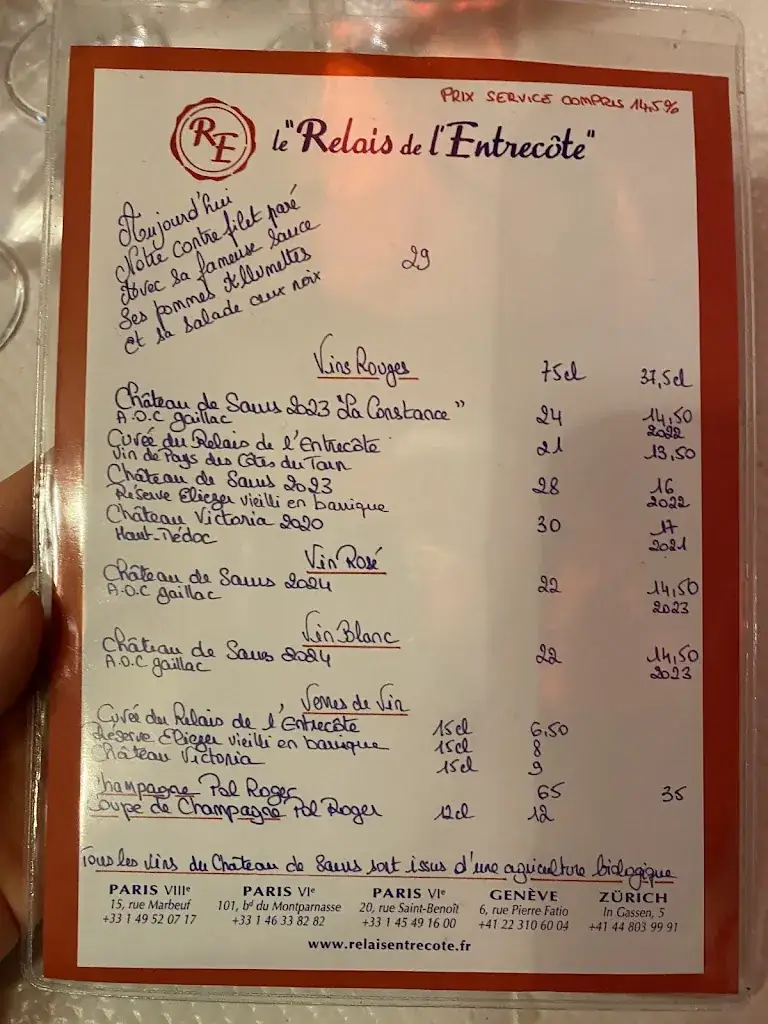 PRIX SERVICE COMPRIS 14,5%
RE
le "Relais de l'Entrecôte"
Aujourd'hui
Notre contre filet paré
Avec sa fameuse sauce
Ses pommes Allumettes
et sa salade aux noix
29
Vins Rouges 75cl 37,5cl
Château de Saurs 2023 "La Constance" 24 14,50
A.O.C gaillac 2022
Cuvée du Relais de l'Entrecôte 21 13,50
Vin de Pays des Côtes du Tarn
Château de Saurs 2023 28 16
Réserve Eliezer vieilli en barrique 2022
Château Victoria 2020 30 17
Haut-Médoc 2021
Vin Rosé
Château de Saurs 2024 22 14,50
A.O.C gaillac 2023
Vin Blanc
Château de Saurs 2024 22 14,50
A.O.C gaillac 2023
Verres de Vin
Cuvée du Relais de l'Entrecôte 15cl 6,50
Réserve Eliezer vieilli en barrique 15cl 8
Château Victoria 15cl 9
Champagne Pol Roger 65 35
Coupe de Champagne Pol Roger 12cl 12
Tous les Vins du Château de Saurs sont issus d'une agriculture biologique
PARIS VIIIe PARIS VIe PARIS VIe GENÈVE ZÜRICH
15, rue Marbeuf 101, bd du Montparnasse 20, rue Saint-Benoît 6, rue Pierre Fatio In Gassen, 5
+33 1 49 52 07 17 +33 1 46 33 82 82 +33 1 45 49 16 00 +41 22 310 60 04 +41 44 803 99 91
www.relaisentrecote.fr